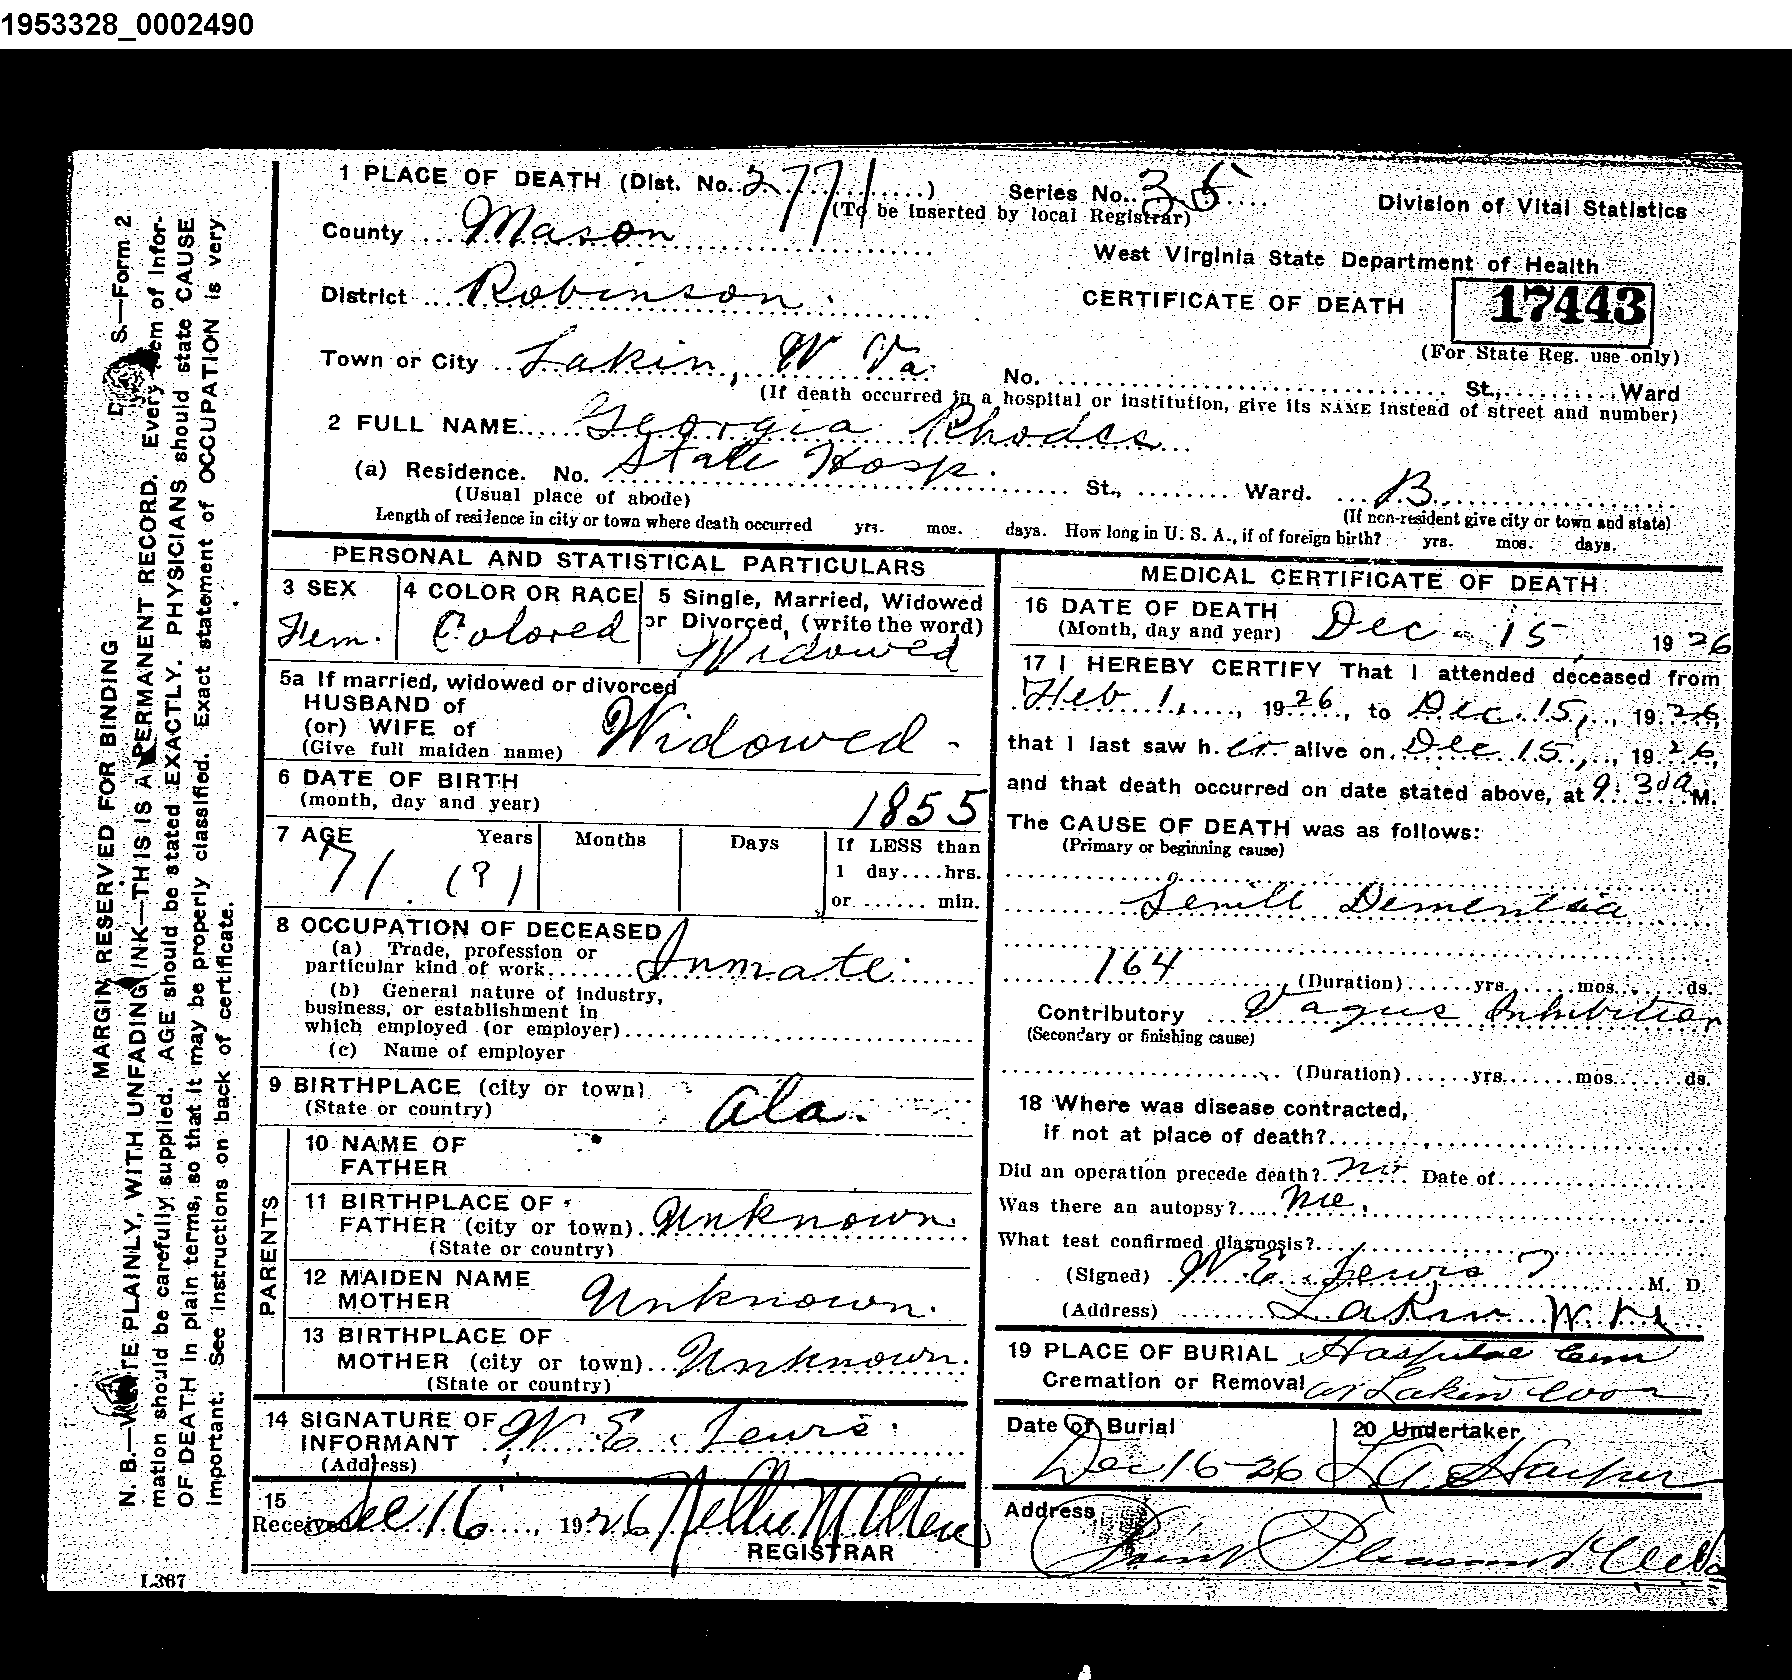 1953328_0002490
1 PLACE OF DEATH (Dist. No. 2771)
Series No. 35
(To be inserted by local Registrar)
Division of Vital Statistics
County Mason
West Virginia State Department of Health
District Robinson.
CERTIFICATE OF DEATH
17443
(For State Reg. use only)
Town or City Lakin, W Va.
No. St., Ward
(If death occurred in a hospital or institution, give its NAME instead of street and number)
2 FULL NAME Georgia Rhodes
(a) Residence. No. State Hosp. St., Ward. B
(Usual place of abode)
(If non-resident give city or town and state)
Length of residence in city or town where death occurred yrs. mos. days. How long in U. S. A., if of foreign birth? yrs. mos. days.
PERSONAL AND STATISTICAL PARTICULARS
3 SEX
Fem.
4 COLOR OR RACE
Colored
5 Single, Married, Widowed
or Divorced, (write the word)
Widowed
5a If married, widowed or divorced
HUSBAND of
(or) WIFE of
(Give full maiden name)
Widowed -
6 DATE OF BIRTH
(month, day and year)
1855
7 AGE Years Months Days
71 (?)
If LESS than
1 day....hrs.
or ...... min.
8 OCCUPATION OF DECEASED
(a) Trade, profession or
particular kind of work Inmate
(b) General nature of industry,
business, or establishment in
which employed (or employer)
(c) Name of employer
9 BIRTHPLACE (city or town)
(State or country)
Ala.
PARENTS
10 NAME OF
FATHER
11 BIRTHPLACE OF
FATHER (city or town) Unknown
(State or country)
12 MAIDEN NAME
MOTHER Unknown.
13 BIRTHPLACE OF
MOTHER (city or town) Unknown.
(State or country)
14 SIGNATURE OF
INFORMANT W. E. Lewis
(Address)
15
Received Dec 16, 1926 Nellie M
REGISTRAR
MEDICAL CERTIFICATE OF DEATH
16 DATE OF DEATH
(Month, day and year) Dec - 15, 1926
17 I HEREBY CERTIFY That I attended deceased from
Feb 1, 1926, to Dec. 15, 1926,
that I last saw h er alive on Dec 15, 1926,
and that death occurred on date stated above, at 9:30a M.
The CAUSE OF DEATH was as follows:
(Primary or beginning cause)
Senile Dementia
164
(Duration) yrs. mos. ds.
Contributory Vagus Inhibition
(Secondary or finishing cause)
(Duration) yrs. mos. ds.
18 Where was disease contracted,
if not at place of death?
Did an operation precede death? no Date of
Was there an autopsy?
What test confirmed diagnosis?
(Signed) W. E. Lewis M. D.
(Address) Lakin W. Va
19 PLACE OF BURIAL
Cremation or Removal
Hospital Cem
at Lakin
Date of Burial
Dec 16-26
20 Undertaker
Harper
Address
Point Pleasant
MARGIN RESERVED FOR BINDING
N. B.—WRITE PLAINLY, WITH UNFADING INK—THIS IS A PERMANENT RECORD. Every item of infor-
mation should be carefully supplied. AGE should be stated EXACTLY. PHYSICIANS should state CAUSE
OF DEATH in plain terms, so that it may be properly classified. Exact statement of OCCUPATION is very
important. See instructions on back of certificate.
S.—Form 2
L367